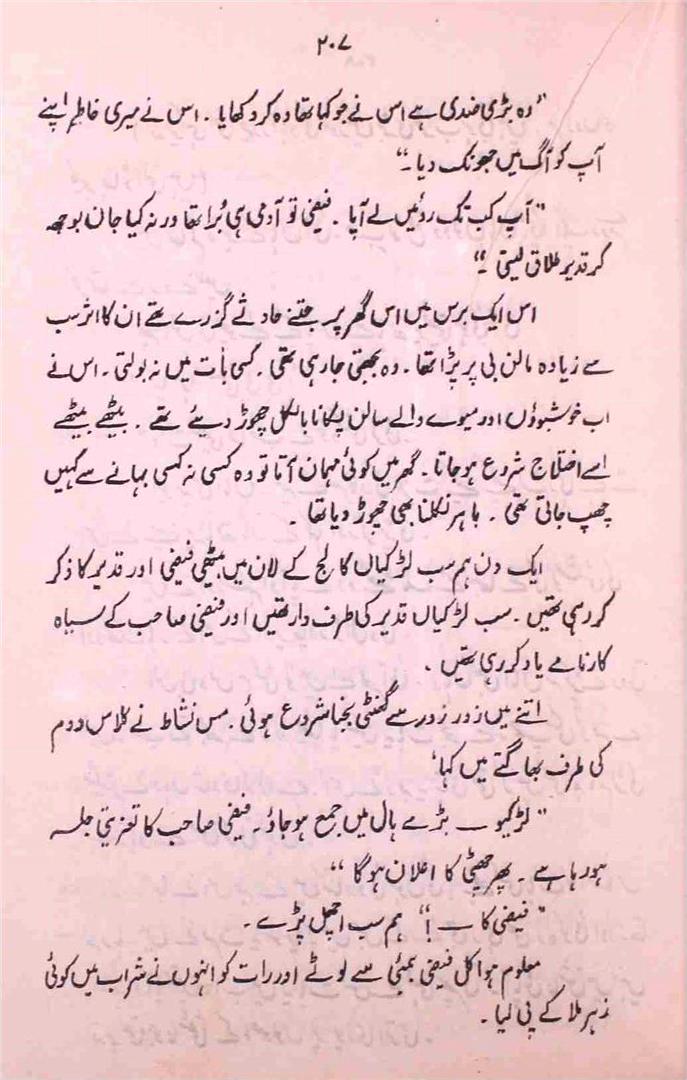 ۲۰۷
”وہ بڑی ضدی ہے اس نے جو کہا تھا وہ کر دکھایا ۔ اس نے میری خاطر اپنے
آپ کو آگ میں جھونک دیا ۔“
”آپ کب تک روئیں لے آپا ۔ فیضی تو آدمی ہی بُرا تھا ورنہ کیا جان بوجھ
کر قدیر طلاق لیتی ۔“
اس ایک برس میں اس گھر پر جتنے حادثے گزرے تھے ان کا اثر سب
سے زیادہ مالن بی پر پڑا تھا ۔ وہ بجھتی جا رہی تھی ۔ کسی بات میں نہ بولتی ۔ اس نے
اب خوشبوؤں اور میوے والے سالن پکانا بالکل چھوڑ دیئے تھے ۔ بیٹھے بیٹھے
اسے اختلاج شروع ہو جاتا ۔ گھر میں کوئی مہمان آتا تو وہ کسی نہ کسی بہانے سے کہیں
چھپ جاتی تھی ۔ باہر نکلنا بھی چھوڑ دیا تھا ۔
ایک دن ہم سب لڑکیاں کالج کے لان میں بیٹھی فیضی اور قدیر کا ذکر
کر رہی تھیں ۔ سب لڑکیاں قدیر کی طرف دار تھیں اور فیضی صاحب کے سیاہ
کارنامے یاد کر رہی تھیں ۔
اتنے میں زور زور سے گھنٹی بجنا شروع ہوئی ۔ مس نشاط نے کلاس روم
کی طرف بھاگتے میں کہا‘
”لڑکیو ــ بڑے ہال میں جمع ہو جاؤ ۔ فیضی صاحب کا تعزیتی جلسہ
ہو رہا ہے ۔ پھر چھٹی کا اعلان ہو گا“
”فیضی کا ــ !“ ہم سب اچھل پڑے ۔
معلوم ہوا کل فیضی بمبئی سے لوٹے اور رات کو انہوں نے شراب میں کوئی
زہر ملا کے پی لیا ۔